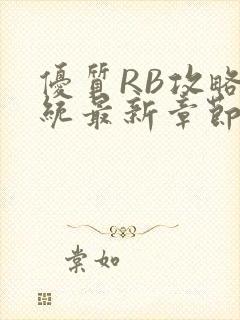 優質RB攻略
統最新章節
棠如